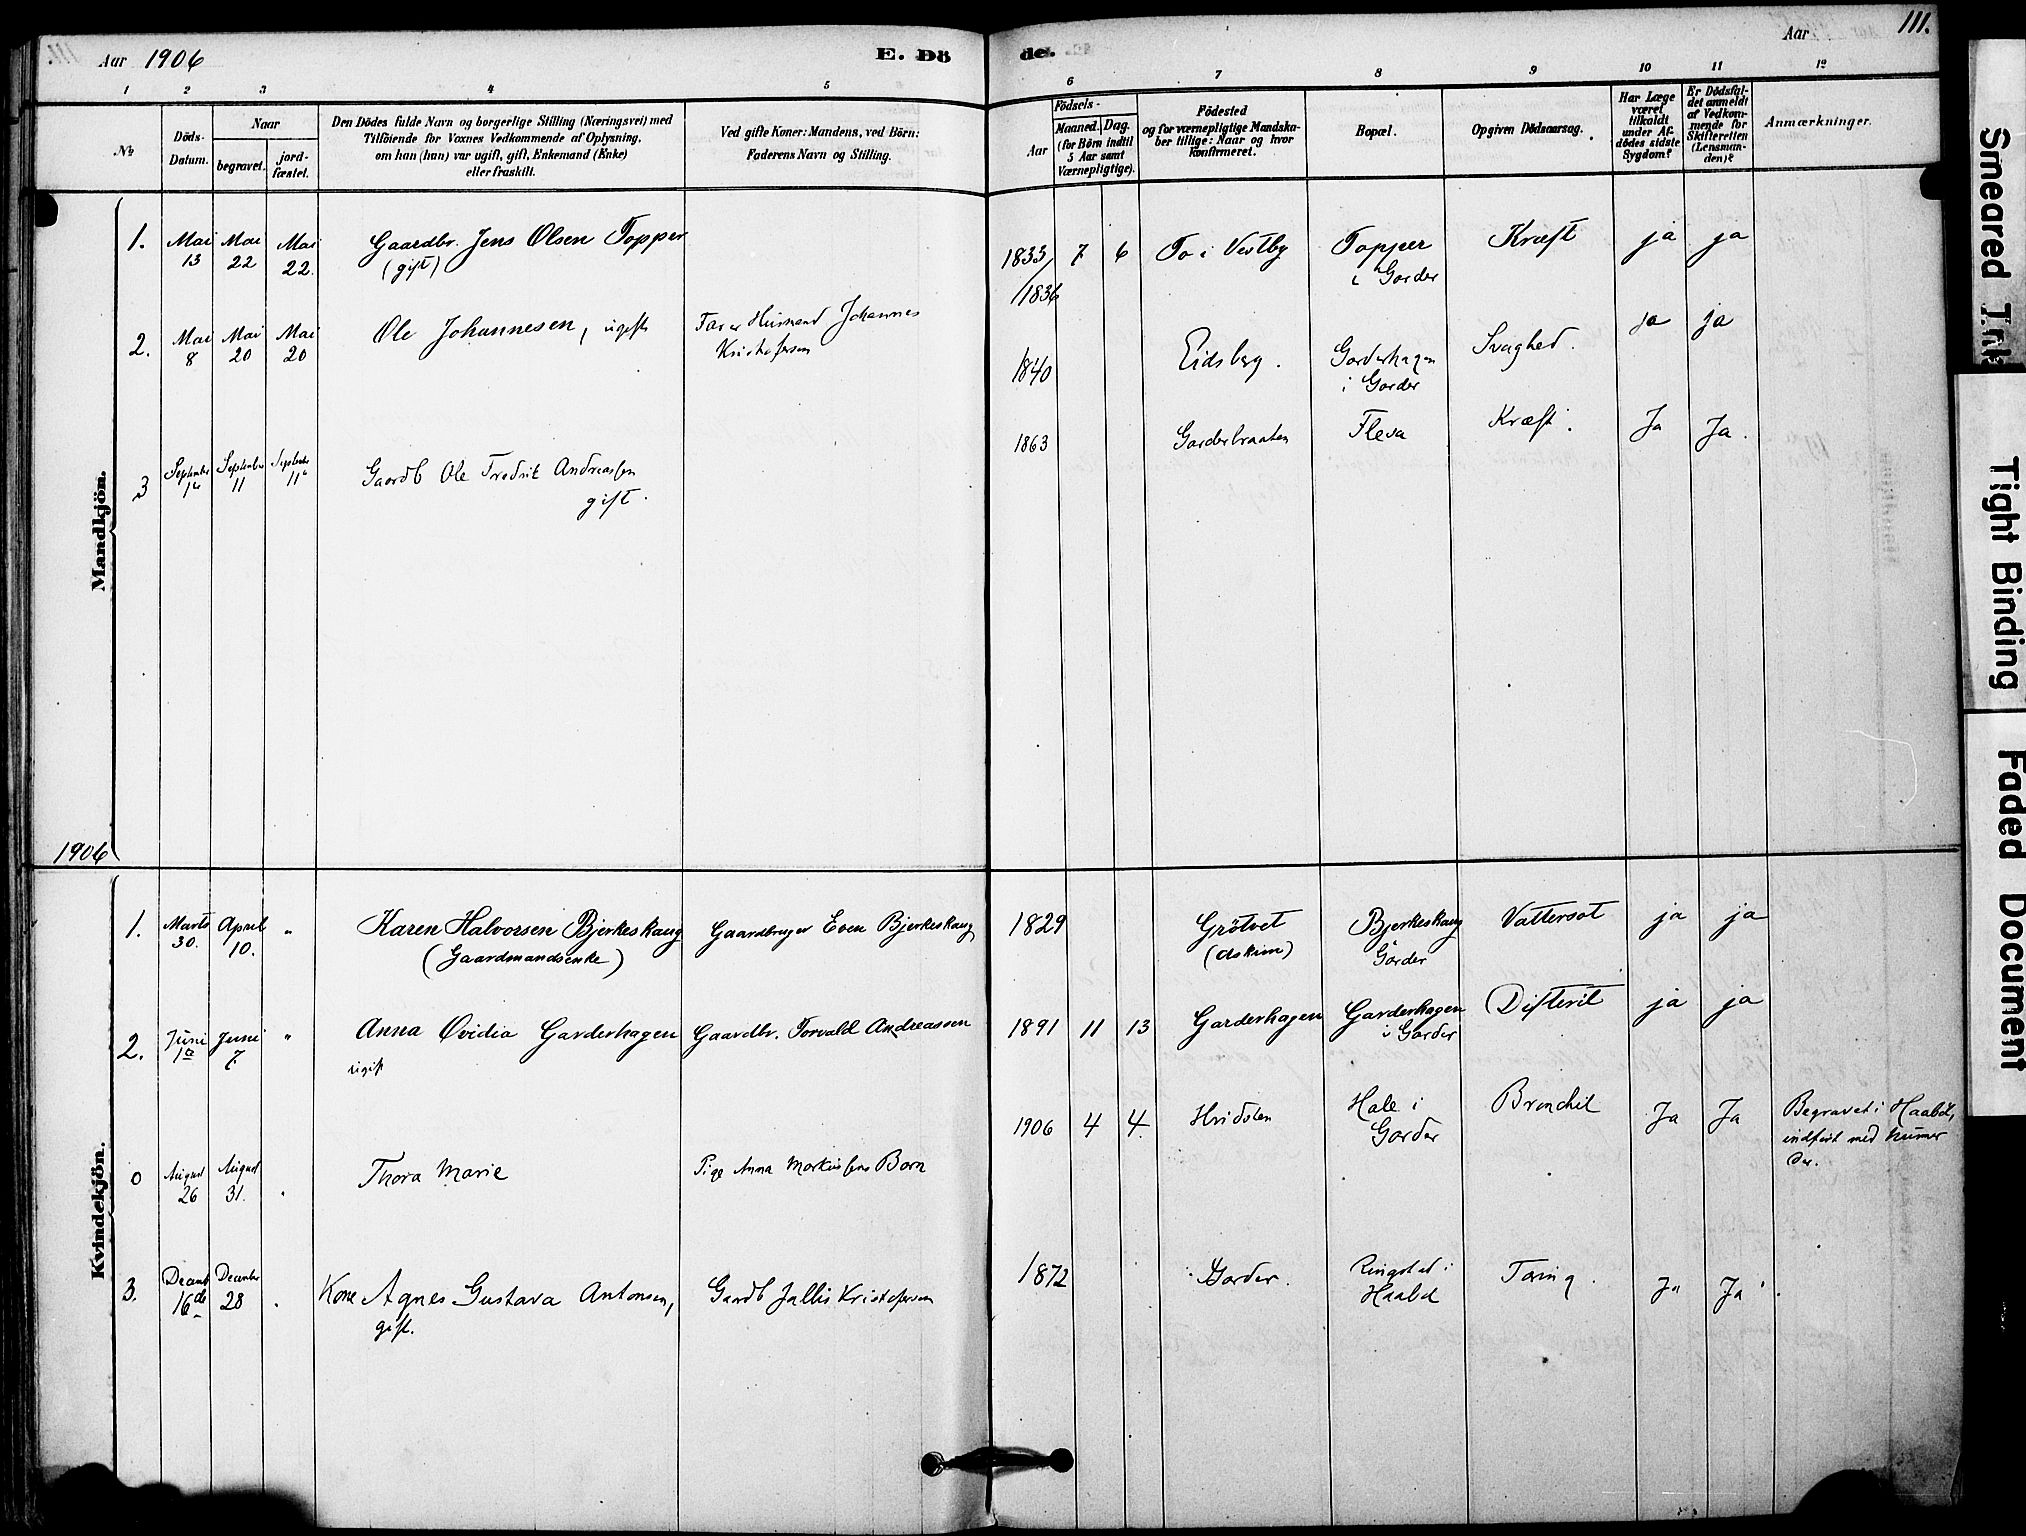 Aar 1906
E. Dö
de.
Aar
111.
1
2
3
4
5
6
7
8
9
10
11
12
No
Döds-
Datum.
Naar
begravet.
jord-
fæstet.
Den Dödes fulde Navn og borgerlige Stilling (Næringsvei) med
Tilföiende for Voxnes Vedkommende af Oplysning,
om han (hun) var ugift, gift, Enkemand (Enke)
eller fraskilt.
Ved gifte Koner: Mandens, ved Börn:
Faderens Navn og Stilling.
Födsels-
Aar
Maaned.
Dag.
(for Börn indtil
5 Aar samt
Værnepligtige).
Födested
og for værnepligtige Mandska-
ber tillige: Naar og hvor
konfirmeret.
Bopæl.
Opgiven Dödsaarsag.
Har Læge
været
tilkaldt
under Af-
dödes sidste
Sygdom?
Er Dödsfal-
det anmeldt
af Vedkom-
mende for
Skifteretten
(Lensman-
den)?
Anmærkninger.
Mandkjön.
1.
Mai
13
Mai
22
Mai
22.
Gaardbr. Jens Olsen Topper
(gift)
1833/
/1836
7
6
To i Vestby
Topper
i Garder
Kræft
ja
ja
2.
Mai
8
Mai
20
Mai
20
Ole Johannesen, ugift
Far er Husmand Johannes
Kristofersen
1840
Eidsberg.
Garderhagen
i Garder
Svaghed.
ja
ja
3
September
1ste
September
11
September
11te
Gaardb Ole Fredrik Andreassen
gift.
1863
Garderbraaten
Fleva
Kræft.
Ja
Ja.
1906
Kvindekjön.
1.
Marts
30.
April
10.
"
Karen Halvorsen Bjerkeskaug
(Gaardmandsenke)
Gaardbruger Even Bjerkeskaug
1829
Grötvet
(Askim)
Bjerkeskaug
Garder
Vattersot
ja
ja
2.
Juni
1ste
Juni
7.
"
Anna Ovidia Garderhagen
ugift
Gaardbr. Torvald Andreassen
1891
11
13
Garderhagen
Garderhagen
i Garder
Difterit
ja
ja
0
August
26
August
31.
"
Thora Marie
Pige Anna Markussens Barn
1906
4
4.
Hvidsten
Hale i
Garder
Bronchit
Ja
Ja
Begravet i Haabøl,
indført med numer
der.
3.
Decemb
16de
December
28
"
Kone Agnes Gustava Antonsen,
gift.
Gaardb Jallis Kristofersen
1872
Garder.
Ringstad i
Haabøl
Tæring.
Ja
Ja
Smeared Ink
Tight Binding
Faded Document